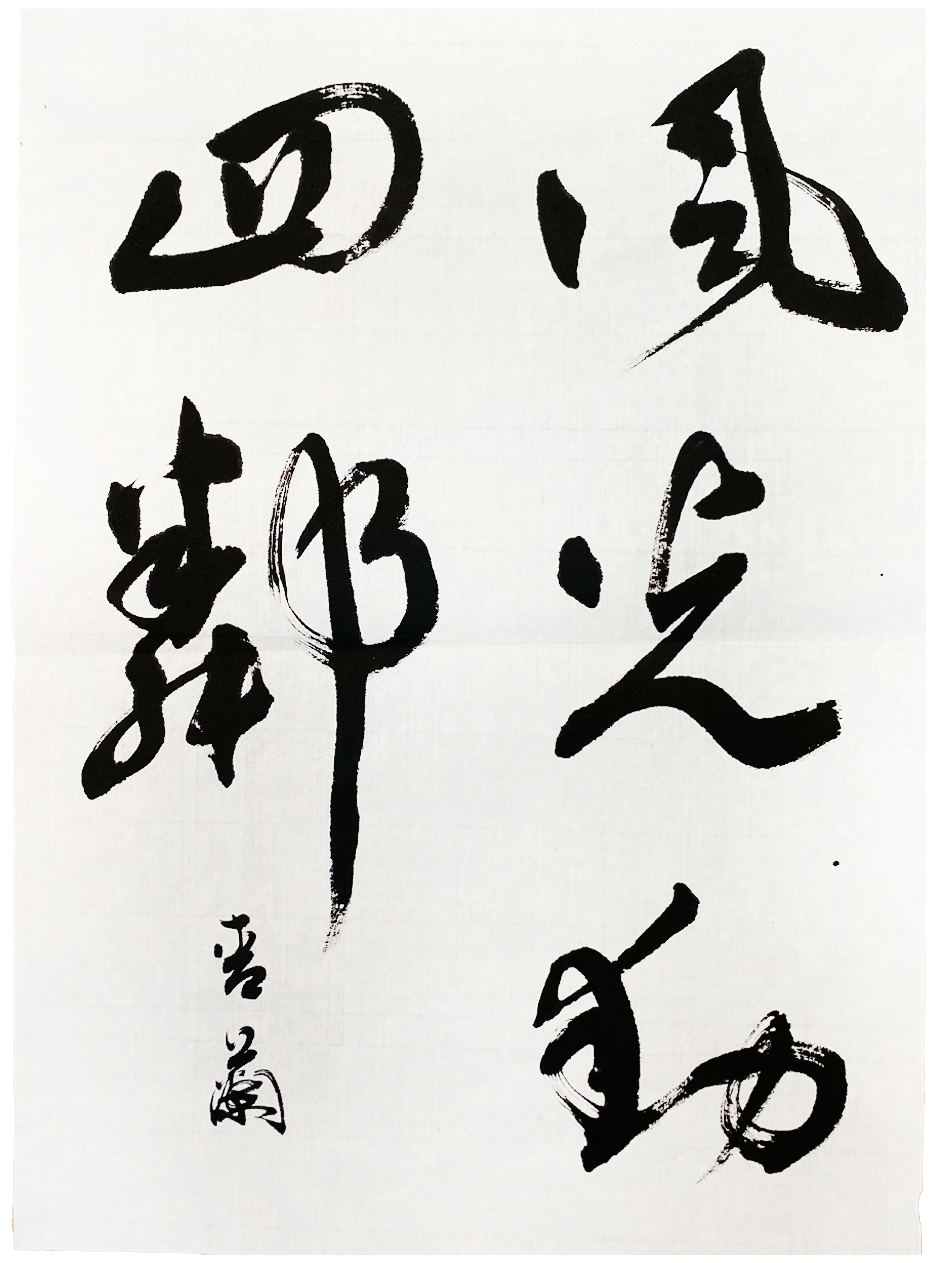 風光動
四鄰
香蘭